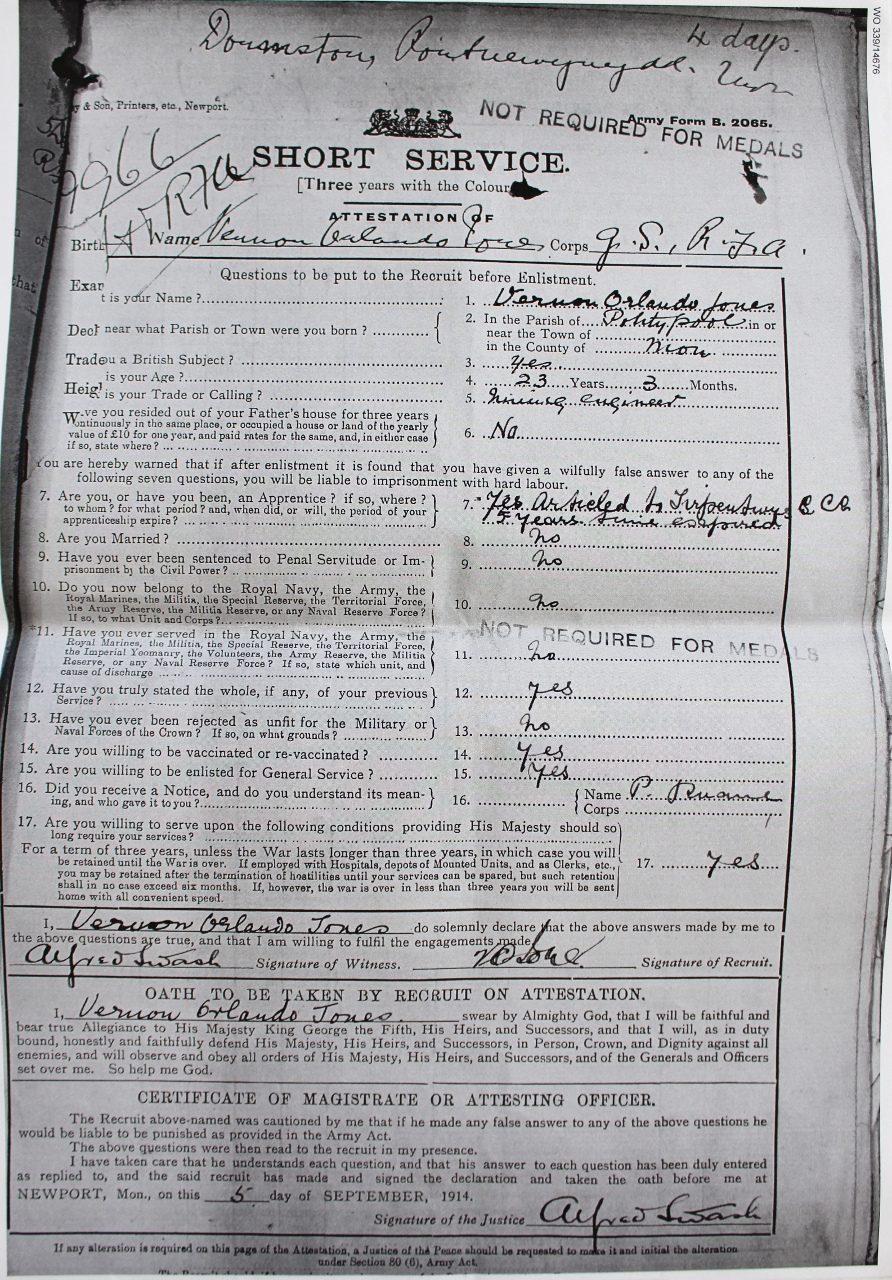 WO 339/14676
4 days.
y & Son, Printers, etc., Newport.
NOT REQUIRED FOR MEDALS
Army Form B. 2065.
9966
SHORT SERVICE.
[Three years with the Colour
ATTESTATION OF
Birth Name Vernon Orlando Jones Corps G. S., R.F.A.
Questions to be put to the Recruit before Enlistment.
Exar
t is your Name ? 1. Vernon Orlando Jones
2. In the Parish of Pontypool in or
Decl near what Parish or Town were you born ? near the Town of
in the County of Mon
Trade u a British Subject ? 3. Yes
is your Age ? 4. 23 Years 3 Months.
Heigl is your Trade or Calling ? 5. Mining Engineer
W ve you resided out of your Father's house for three years
continuously in the same place, or occupied a house or land of the yearly
value of £10 for one year, and paid rates for the same, and, in either case
if so, state where ? 6. No
You are hereby warned that if after enlistment it is found that you have given a wilfully false answer to any of the
following seven questions, you will be liable to imprisonment with hard labour.
7. Are you, or have you been, an Apprentice ? if so, where ? 7. Yes Articled to
to whom ? for what period ? and, when did, or will, the period of your 5 years time expired
apprenticeship expire ?
8. Are you Married ? 8. No
9. Have you ever been sentenced to Penal Servitude or Im-
prisonment by the Civil Power ? 9. No
10. Do you now belong to the Royal Navy, the Army, the
Royal Marines, the Militia, the Special Reserve, the Territorial Force,
the Army Reserve, the Militia Reserve, or any Naval Reserve Force ?
If so, to what Unit and Corps ? 10. No
NOT REQUIRED FOR MEDALS
*11. Have you ever served in the Royal Navy, the Army, the
Royal Marines, the Militia, the Special Reserve, the Territorial Force,
the Imperial Yeomanry, the Volunteers, the Army Reserve, the Militia
Reserve, or any Naval Reserve Force ? If so, state which unit, and
cause of discharge 11. No
12. Have you truly stated the whole, if any, of your previous
Service ? 12. Yes
13. Have you ever been rejected as unfit for the Military or
Naval Forces of the Crown ? If so, on what grounds ? 13. No
14. Are you willing to be vaccinated or re-vaccinated ? 14. Yes
15. Are you willing to be enlisted for General Service ? 15. Yes
16. Did you receive a Notice, and do you understand its mean- Name P.
ing, and who gave it to you ? 16. Corps
17. Are you willing to serve upon the following conditions providing His Majesty should so
long require your services ?
For a term of three years, unless the War lasts longer than three years, in which case you will
be retained until the War is over. If employed with Hospitals, depots of Mounted Units, and as Clerks, etc.,
you may be retained after the termination of hostilities until your services can be spared, but such retention
shall in no case exceed six months. If, however, the war is over in less than three years you will be sent
home with all convenient speed. 17. Yes
I, Vernon Orlando Jones do solemnly declare that the above answers made by me to
the above questions are true, and that I am willing to fulfil the engagements made
Alfred Swash Signature of Witness. VO Jones Signature of Recruit.
OATH TO BE TAKEN BY RECRUIT ON ATTESTATION.
I, Vernon Orlando Jones swear by Almighty God, that I will be faithful and
bear true Allegiance to His Majesty King George the Fifth, His Heirs, and Successors, and that I will, as in duty
bound, honestly and faithfully defend His Majesty, His Heirs, and Successors, in Person, Crown, and Dignity against all
enemies, and will observe and obey all orders of His Majesty, His Heirs, and Successors, and of the Generals and Officers
set over me. So help me God.
CERTIFICATE OF MAGISTRATE OR ATTESTING OFFICER.
The Recruit above-named was cautioned by me that if he made any false answer to any of the above questions he
would be liable to be punished as provided in the Army Act.
The above questions were then read to the recruit in my presence.
I have taken care that he understands each question, and that his answer to each question has been duly entered
as replied to, and the said recruit has made and signed the declaration and taken the oath before me at
NEWPORT, Mon., on this 5 day of SEPTEMBER, 1914.
Signature of the Justice Alfred Swash
If any alteration is required on this page of the Attestation, a Justice of the Peace should be requested to make it and initial the alteration
under Section 80 (6), Army Act.